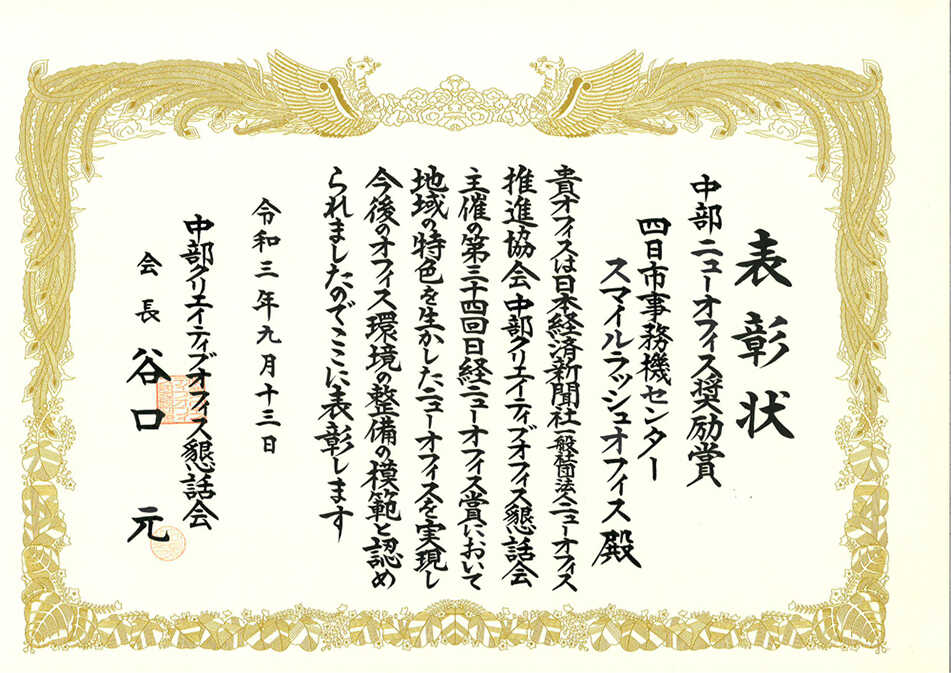 表彰状
中部ニューオフィス奨励賞
四日市事務機センター
スマイルラッシュオフィス殿
貴オフィスは日本経済新聞社一般社団法人ニューオフィス
推進協会中部クリエイティブオフィス懇話会
主催の第三十四回日経ニューオフィス賞において
地域の特色を生かしたニューオフィスを実現し
今後のオフィス環境の整備の模範と認め
られましたのでここに表彰します
令和三年九月十三日
中部クリエイティブオフィス懇話会
会長 谷口 元